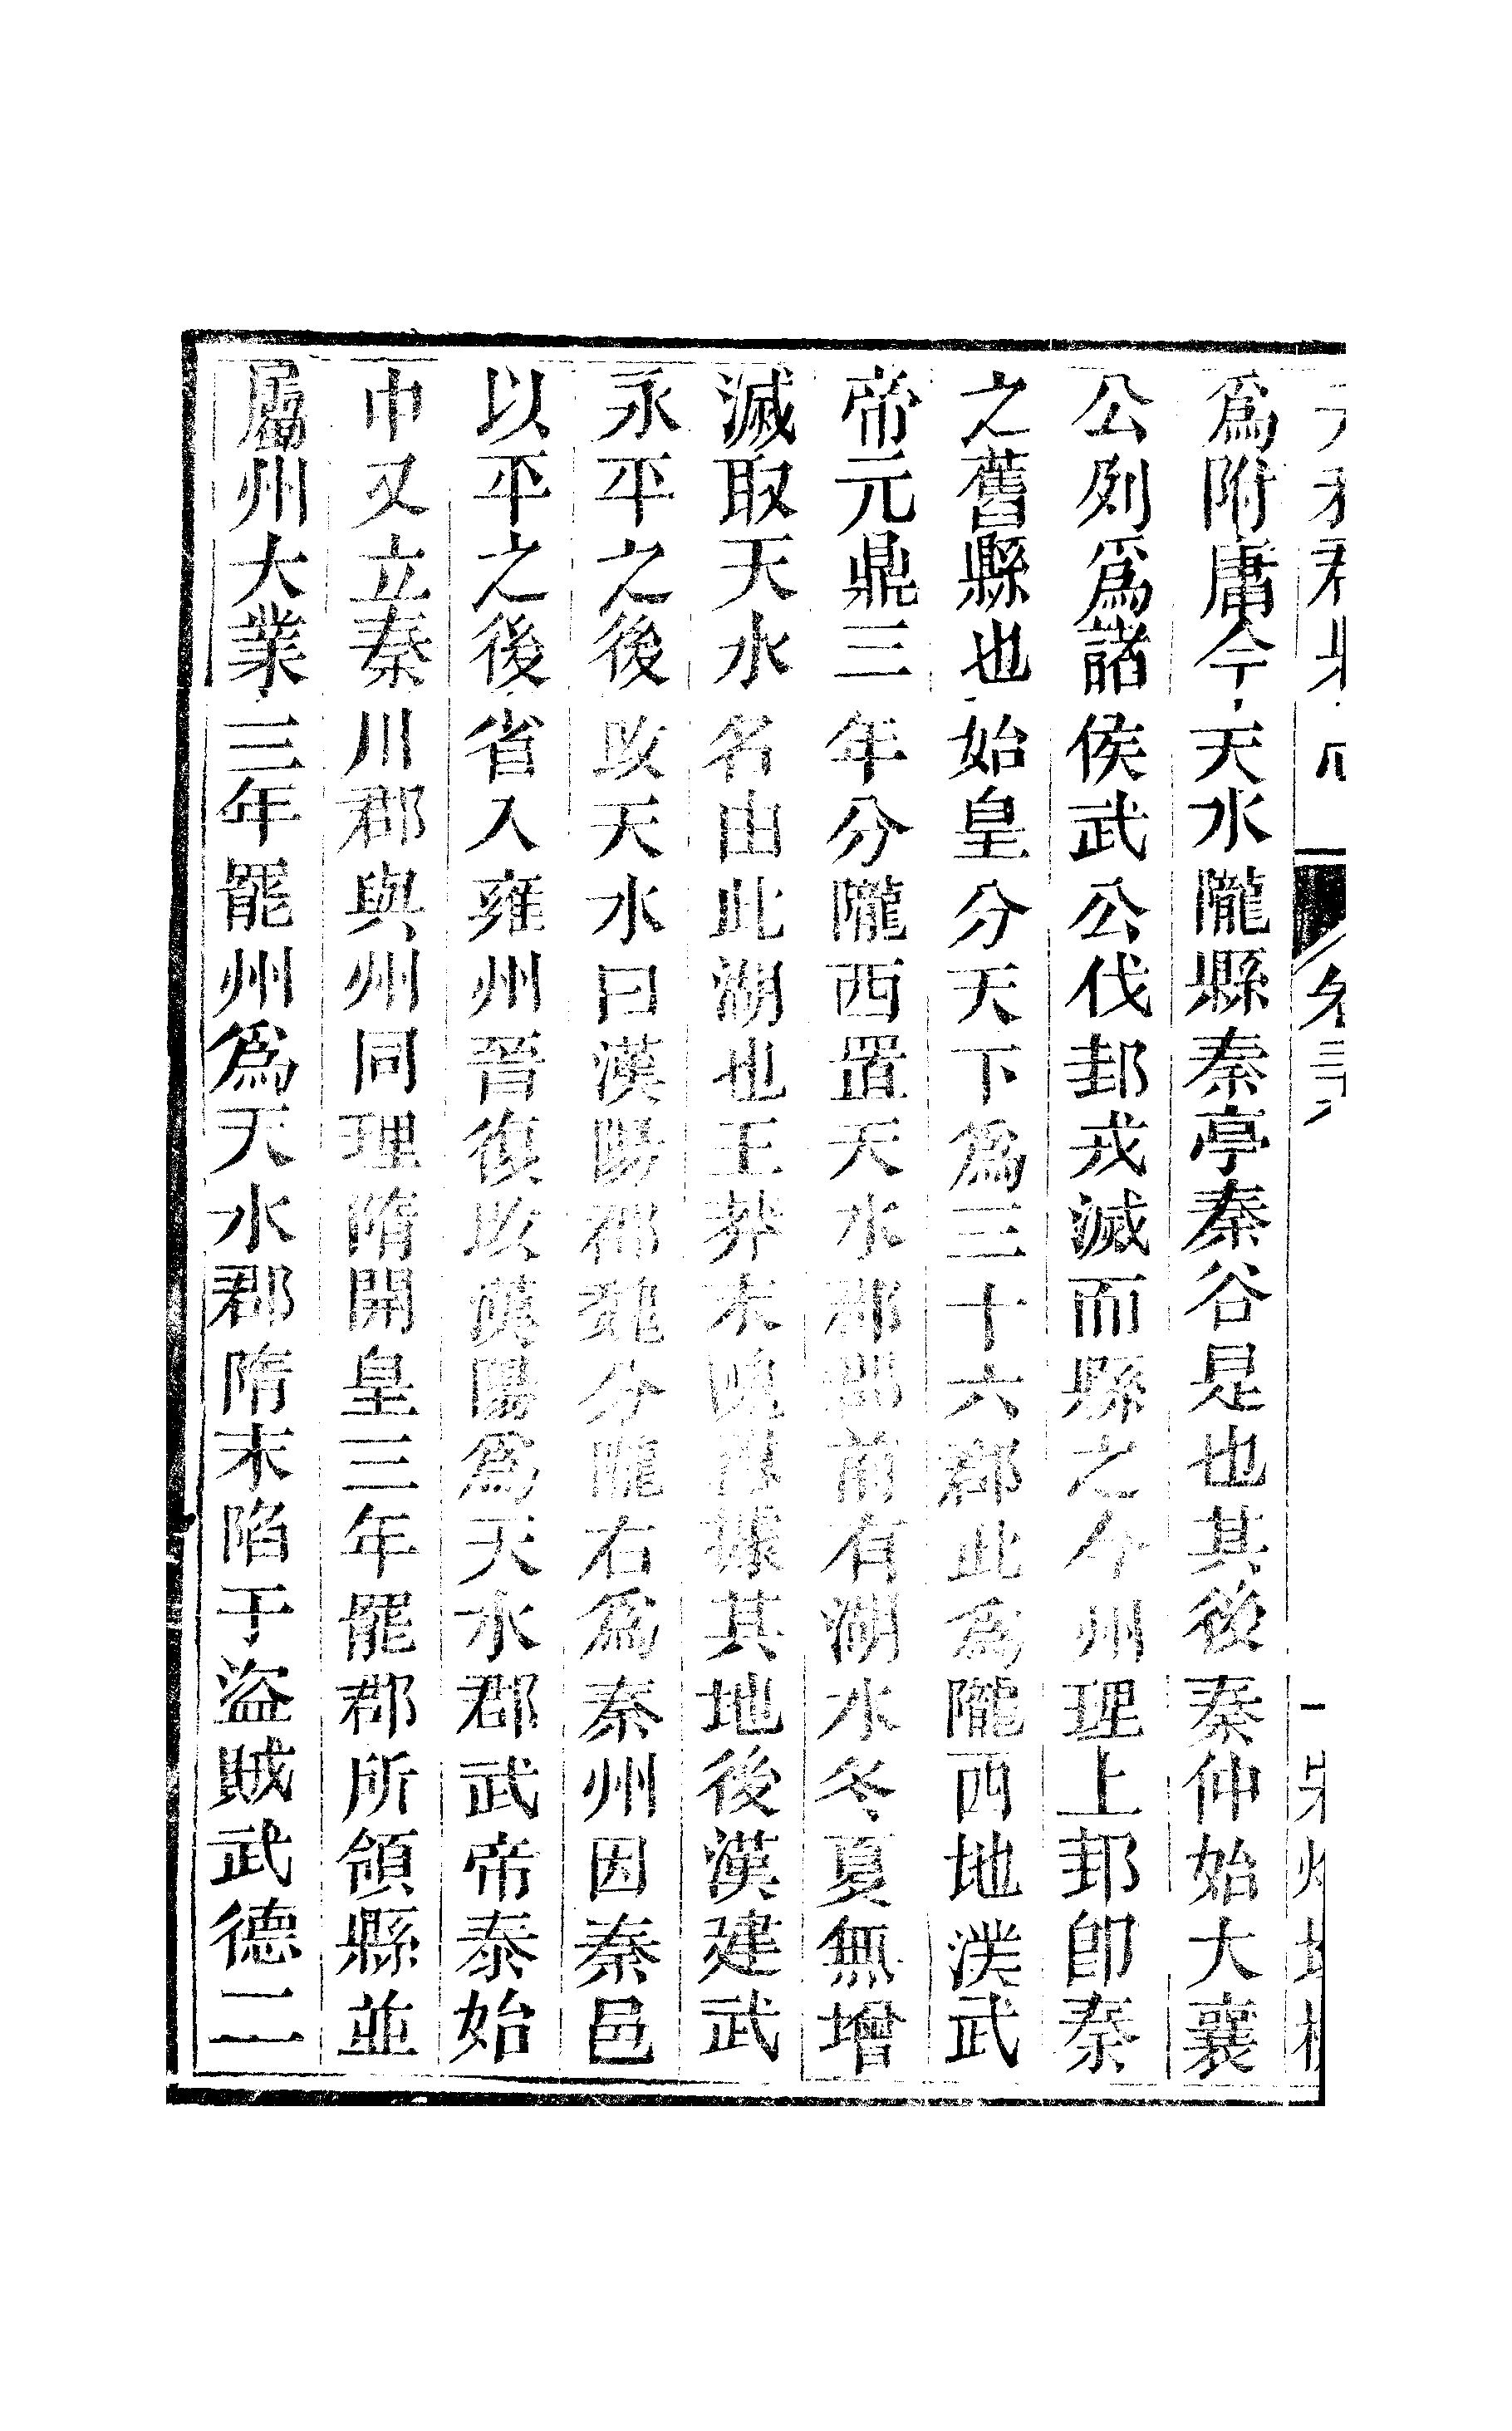 爲附庸今天水隴縣秦亭秦谷是也其後秦仲始大襄
公列爲諸侯武公伐邽戎滅而縣之今州理上邽卽秦
之舊縣也始皇分天下爲三十六郡此爲隴西地漢武
帝元鼎三年分隴西置天水郡郡前有湖水冬夏無增
減取天水名由此湖也王莽末隗囂據其地後漢建武
永平之後改天水曰漢陽郡魏分隴右爲秦州因秦邑
以平之後省入雍州晉復改漢陽爲天水郡武帝泰始
中又立秦川郡與州同理隋開皇三年罷郡所領縣並
屬州大業三年罷州爲天水郡隋末陷于盜賊武德二